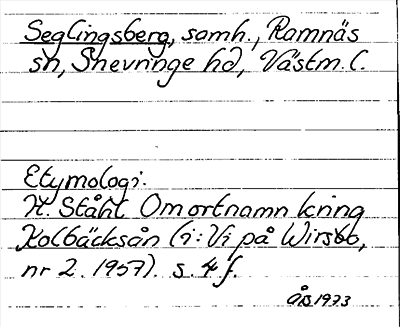 Seglingsberg, samh., Ramnäs
sn, Snevringe hd, Västm. l.
Etymologi.
H. Ståhl Om ortnamn kring
Kolbäcksån (i: Vi på Wirsbo,
nr 2. 1957). s. 4 f.
ÅB 1973